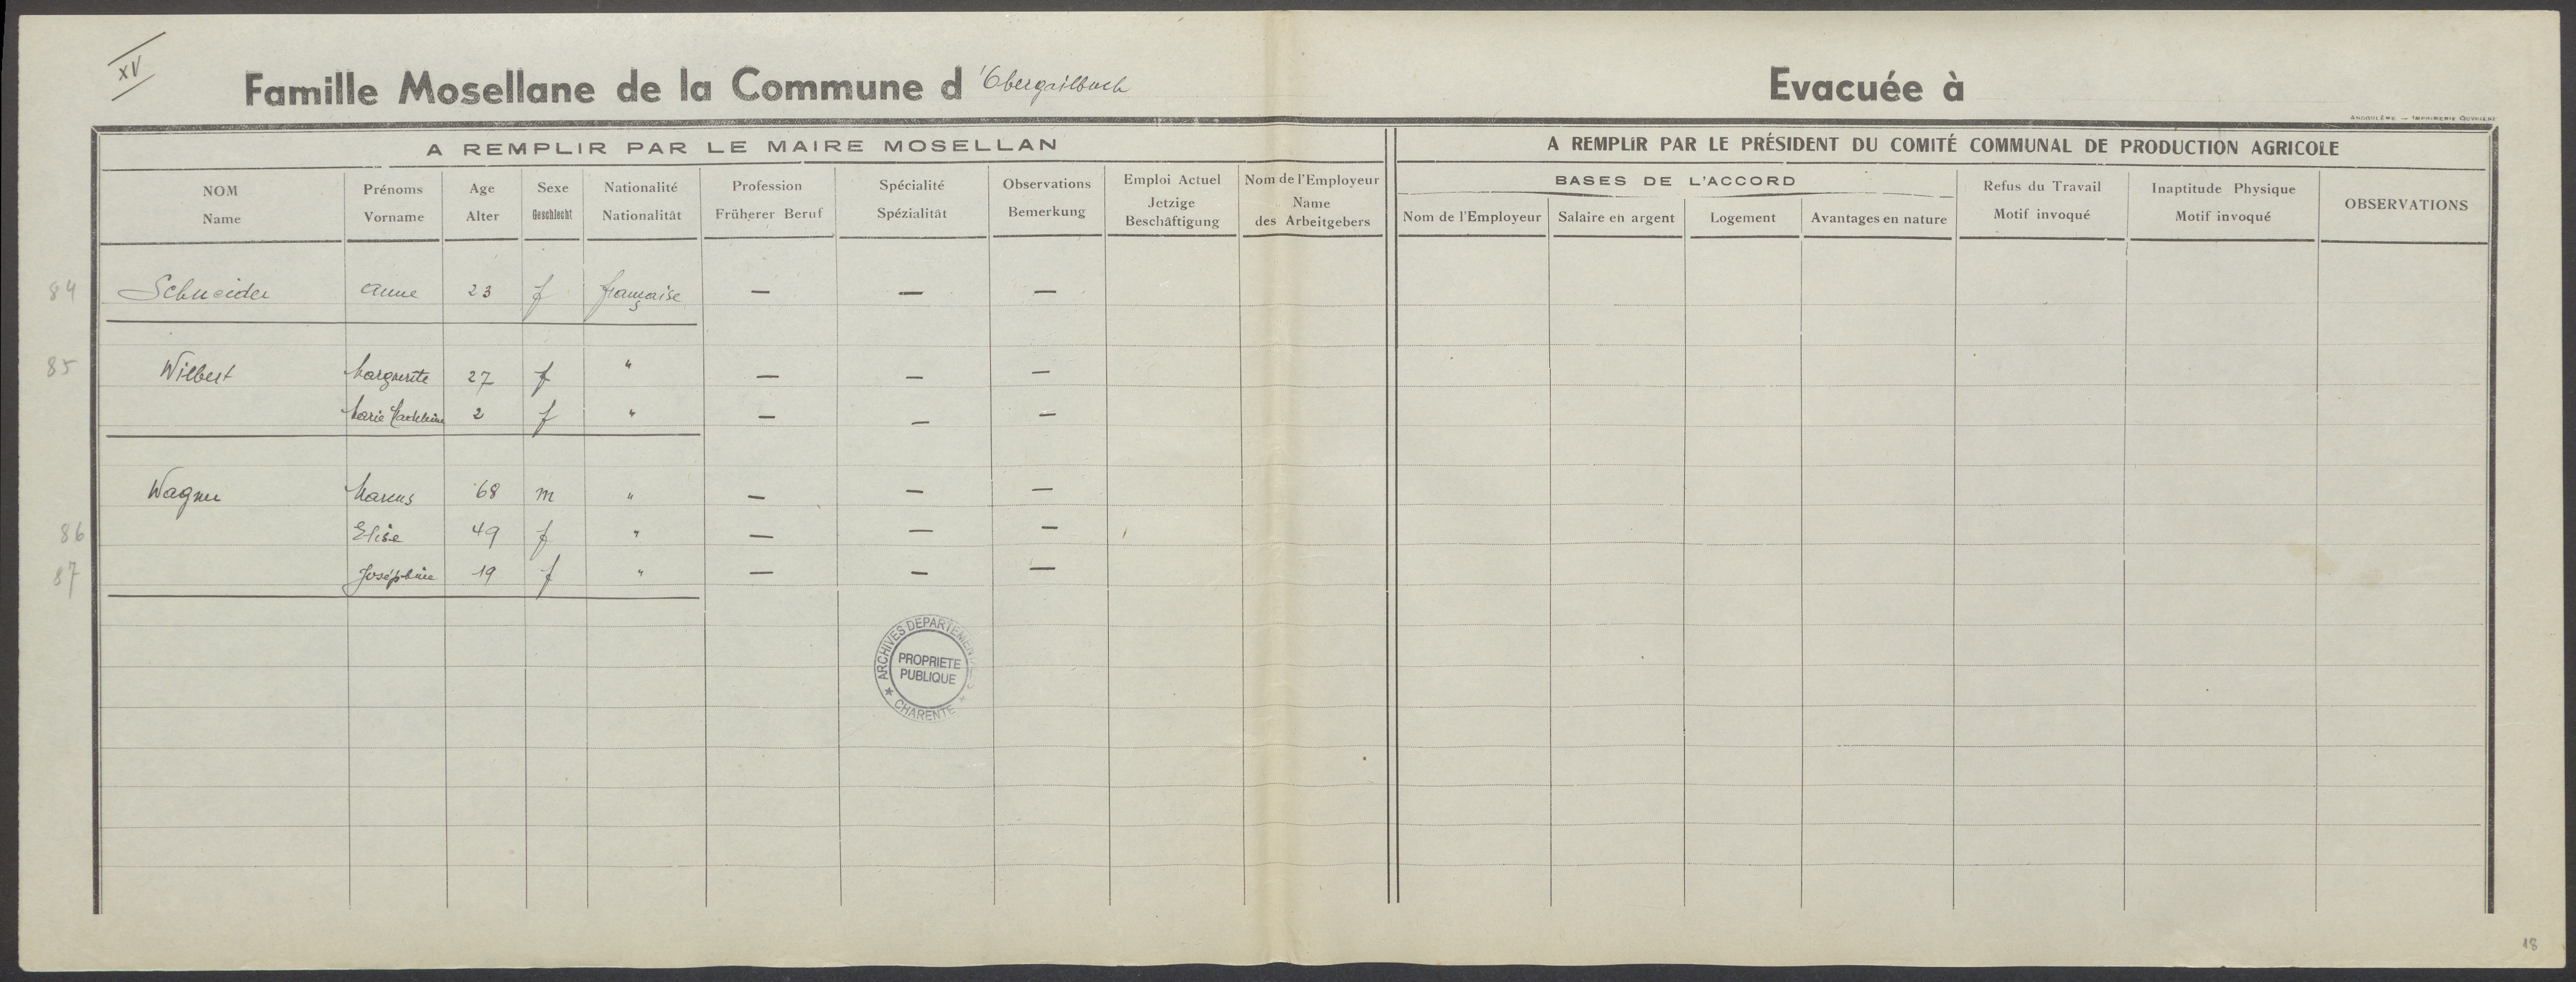 XV
Famille Mosellane de la Commune d'Obergailbach Evacuée à
ANGOULÊME — IMPRIMERIE OUVRIÈRE
A REMPLIR PAR LE MAIRE MOSELLAN A REMPLIR PAR LE PRÉSIDENT DU COMITÉ COMMUNAL DE PRODUCTION AGRICOLE
BASES DE L'ACCORD
NOM Prénoms Age Sexe Nationalité Profession Spécialité Observations Emploi Actuel Nom de l'Employeur Refus du Travail Inaptitude Physique
Name Vorname Alter Geschlecht Nationalität Früherer Beruf Spézialität Bemerkung Jetzige Name Nom de l'Employeur Salaire en argent Logement Avantages en nature Motif invoqué Motif invoqué OBSERVATIONS
Beschäftigung des Arbeitgebers
84 Schneider Anne 23 f française — — —
85 Wilbert Marguerite 27 f " — — —
Marie Madeleine 2 f " — — —
Wagner Marcus 68 m " — — —
86 Elise 49 f " — — —
87 Joséphine 19 f " — — —
ARCHIVES DEPARTEMENTALES
PROPRIETE
PUBLIQUE
* CHARENTE *
18